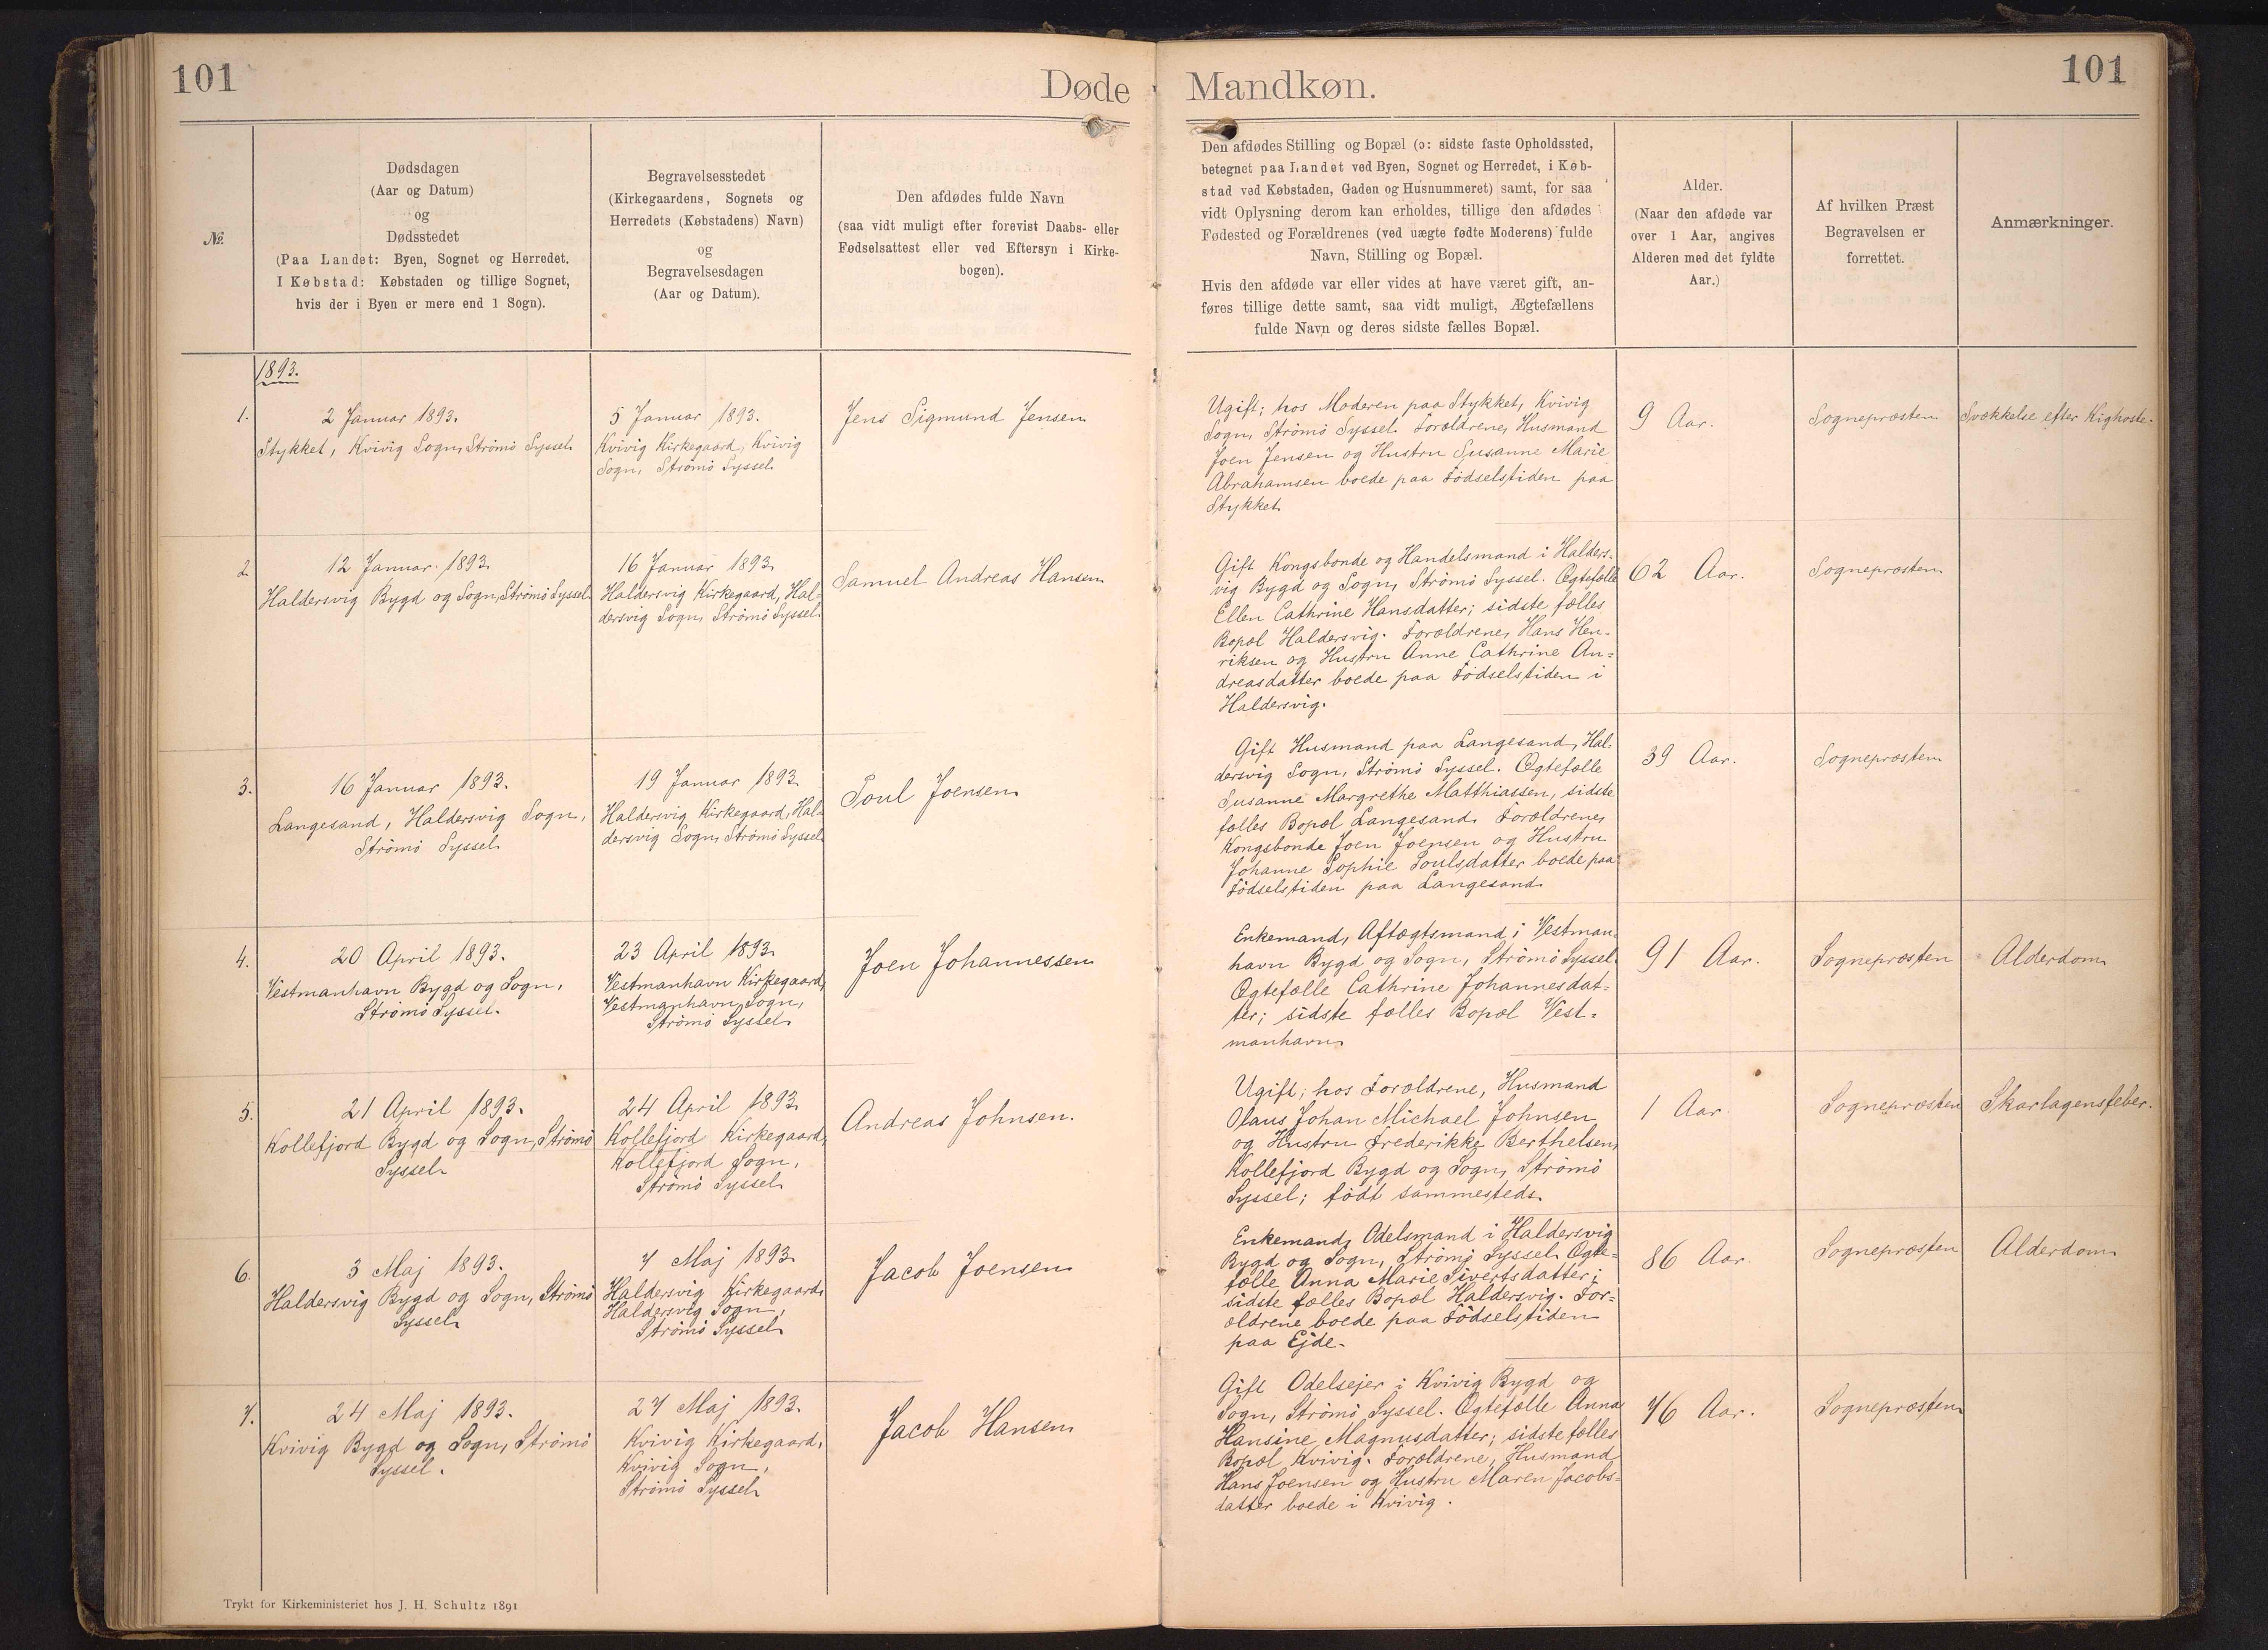 101
Døde
Mandkøn.
101
№
Dødsdagen
(Aar og Datum)
og
Dødsstedet
(Paa Landet: Byen, Sognet og Herredet.
I Købstad: Købstaden og tillige Sognet,
hvis der i Byen er mere end 1 Sogn).
Begravelsesstedet
(Kirkegaardens, Sognets og
Herredets (Købstadens) Navn)
og
Begravelsesdagen
(Aar og Datum).
Den afdødes fulde Navn
(saa vidt muligt efter forevist Daabs- eller
Fødselsattest eller ved Eftersyn i Kirke-
bogen).
Den afdødes Stilling og Bopæl (ɔ: sidste faste Opholdssted,
betegnet paa Landet ved Byen, Sognet og Herredet, i Køb-
stad ved Købstaden, Gaden og Husnummeret) samt, for saa
vidt Oplysning derom kan erholdes, tillige den afdødes
Fødested og Forældrenes (ved uægte fødte Moderens) fulde
Navn, Stilling og Bopæl.
Hvis den afdøde var eller vides at have været gift, an-
føres tillige dette samt, saa vidt muligt, Ægtefællens
fulde Navn og deres sidste fælles Bopæl.
Alder.
(Naar den afdøde var
over 1 Aar, angives
Alderen med det fyldte
Aar.)
Af hvilken Præst
Begravelsen er
forrettet.
Anmærkninger.
1893.
1.
2 Januar 1893.
Stykket, Kvivig Sogn, Strömö Syssel
5 Januar 1893.
Kvivig Kirkegaard, Kvivig
Sogn, Strömö Syssel
Jens Sigmund Jensen
Ugift; hos Moderen paa Stykket, Kvivig
Sogn, Strömö Syssel. Forældrene, Husmand
Joen Jensen og Hustru Susanne Marie
Abrahamsen boede paa Födselstiden paa
Stykket.
9 Aar.
Sognepræsten
Svækkelse efter Kighoste.
2.
12 Januar 1893.
Haldersvig Bygd og Sogn, Strömö Syssel
16 Januar 1893.
Haldersvig Kirkegaard, Hal-
dersvig Sogn, Strömö Syssel.
Samuel Andreas Hansen
Gift Kongsbonde og Handelsmand i Halders-
vig Bygd og Sogn, Strömö Syssel. Ægtefælle
Ellen Cathrine Hansdatter; sidste fælles
Bopæl Haldersvig. Forældrene, Hans Hen-
riksen og Hustru Anne Cathrine An=
dreasdatter boede paa Födselstiden i
Haldersvig.
62 Aar.
Sognepræsten
3.
16 Januar 1893.
Langesand, Haldersvig Sogn,
Strömö Syssel
19 Januar 1893.
Haldersvig Kirkegaard, Hal-
dersvig Sogn, Strömö Syssel
Poul Joensen
Gift Husmand paa Langesand, Hal-
dersvig Sogn, Strömö Syssel. Ægtefælle
Susanne Margrethe Matthiassen, sidste
fælles Bopæl Langesand. Forældrene,
Kongsbonde Joen Joensen og Hustru
Johanne Sophie Poulsdatter boede paa
Födselstiden paa Langesand.
39 Aar.
Sognepræsten
4.
20 April 1893.
Vestmanhavn Bygd og Sogn,
Strömö Syssel.
23 April 1893.
Vestmanhavn Kirkegaard,
Vestmanhavn Sogn,
Strömö Syssel.
Joen Johannessen
Enkemand, Aftægtsmand i Vestman-
havn Bygd og Sogn, Strömö Syssel.
Ægtefælle Cathrine Johannesdat=
ter; sidste fælles Bopæl Vest=
manhavn.
91 Aar.
Sognepræsten
Alderdom
5.
21 April 1893.
Kollefjord Bygd og Sogn, Strömö
Syssel
24 April 1893.
Kollefjord Kirkegaard,
Kollefjord Sogn,
Strömö Syssel
Andreas Johnsen.
Ugift; hos Forældrene, Husmand
Olaus Johan Michael Johnsen
og Hustru Frederikke Berthelsen,
Kollefjord Bygd og Sogn, Strömö
Syssel; född sammesteds.
1 Aar.
Sognepræsten
Skarlagensfeber.
6.
3 Maj 1893.
Haldersvig Bygd og Sogn, Strömö
Syssel
7 Maj 1893.
Haldersvig Kirkegaard,
Haldersvig Sogn,
Strömö Syssel
Jacob Joensen
Enkemand, Odelsmand i Haldersvig
Bygd og Sogn, Strömö Syssel Ægte=
fælle Anna Marie Sivertsdatter;
sidste fælles Bopæl Haldersvig. For=
ældrene boede paa Födselstiden
paa Ejde.
86 Aar.
Sognepræsten
Alderdom
7.
24 Maj 1893.
Kvivig Bygd og Sogn, Strömö
Syssel.
27 Maj 1893.
Kvivig Kirkegaard,
Kvivig Sogn,
Strömö Syssel
Jacob Hansen
Gift Odelsejer i Kvivig Bygd og
Sogn, Strömö Syssel. Ægtefælle Anna
Hansine Magnusdatter; sidste fælles
Bopæl Kvivig. Forældrene, Husmand
Hans Joensen og Hustru Maren Jacobs-
datter boede i Kvivig.
76 Aar.
Sognepræsten
Trykt for Kirkeministeriet hos J. H. Schultz 1891